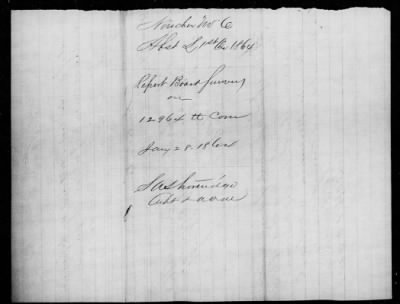 Voucher No 6
Abst L, 1st Qr 1864
Report Board Survey
on
12964 lb Corn
Jany 28 1864
Capt & A.Q.M.